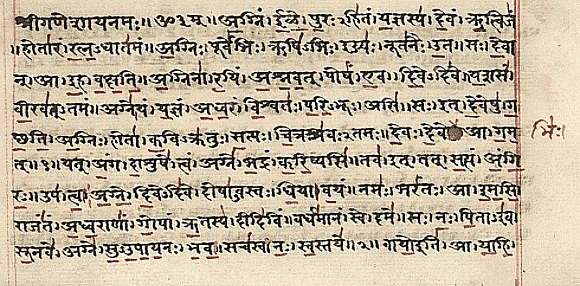 श्रीगणेशायनमः॥ॐ३म्॥अग्निं।ईळे।पुरःऽहितं।यज्ञस्य।देवं।ऋत्विजं
॥होतारं।रत्नऽधातमं॥अग्निः।पूर्वेभिः।ऋषिऽभिः।ईड्यः।नूतनैः।उत॥सः।देवा
न्।आ।इह।वक्षति॥अग्निना।रयिं।अश्नवत्।पोषं।एव।दिवेऽदिवे॥यशसं
वीरवत्ऽतमं॥अग्ने।यं।यज्ञं।अध्वरं।विश्वतः।परिऽभूः।असि॥सः।इत्।देवेषु।ग
च्छति॥अग्निः।होता।कविऽक्रतुः।सत्यः।चित्रश्रवःऽतमः॥देवः।देवे।आ।गम
भिः।
त्॥१॥यत्।अंग।दाशुषे।त्वं।अग्ने।भद्रं।करिष्यसि॥तव।इत्।तत्।सत्यं।अंगि
रः॥उप।त्वा।अग्ने।दिवेऽदिवे।दोषाऽवस्तः।धिया।वयं॥नमः।भरंतः।आ।इमसि
राजंतं।अध्वराणां।गोपां।ऋतस्य।दीदिविं॥वर्धमानं।स्वे।दमे॥सः।नः।पिताऽइव
सूनवे।अग्ने।सुऽउपायनः।भव॥सचस्व।नः।स्वस्तये॥२॥वायो इति।आ।याहि।